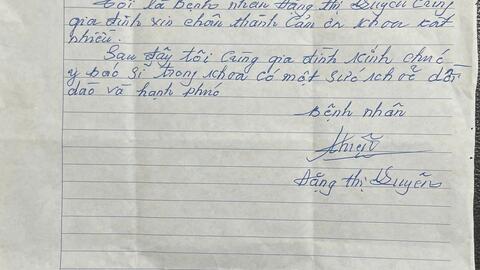 Tôi là Bệnh nhân Đặng thị Duyên Cùng
gia đình xin chân thành Cảm ơn khoa rất
nhiều.
Sau đây tôi Cùng gia đình kính chúc
y bác sĩ trong khoa có một sức khoẻ dồi
dào và hạnh phúc
Bệnh nhân
Đặng thị